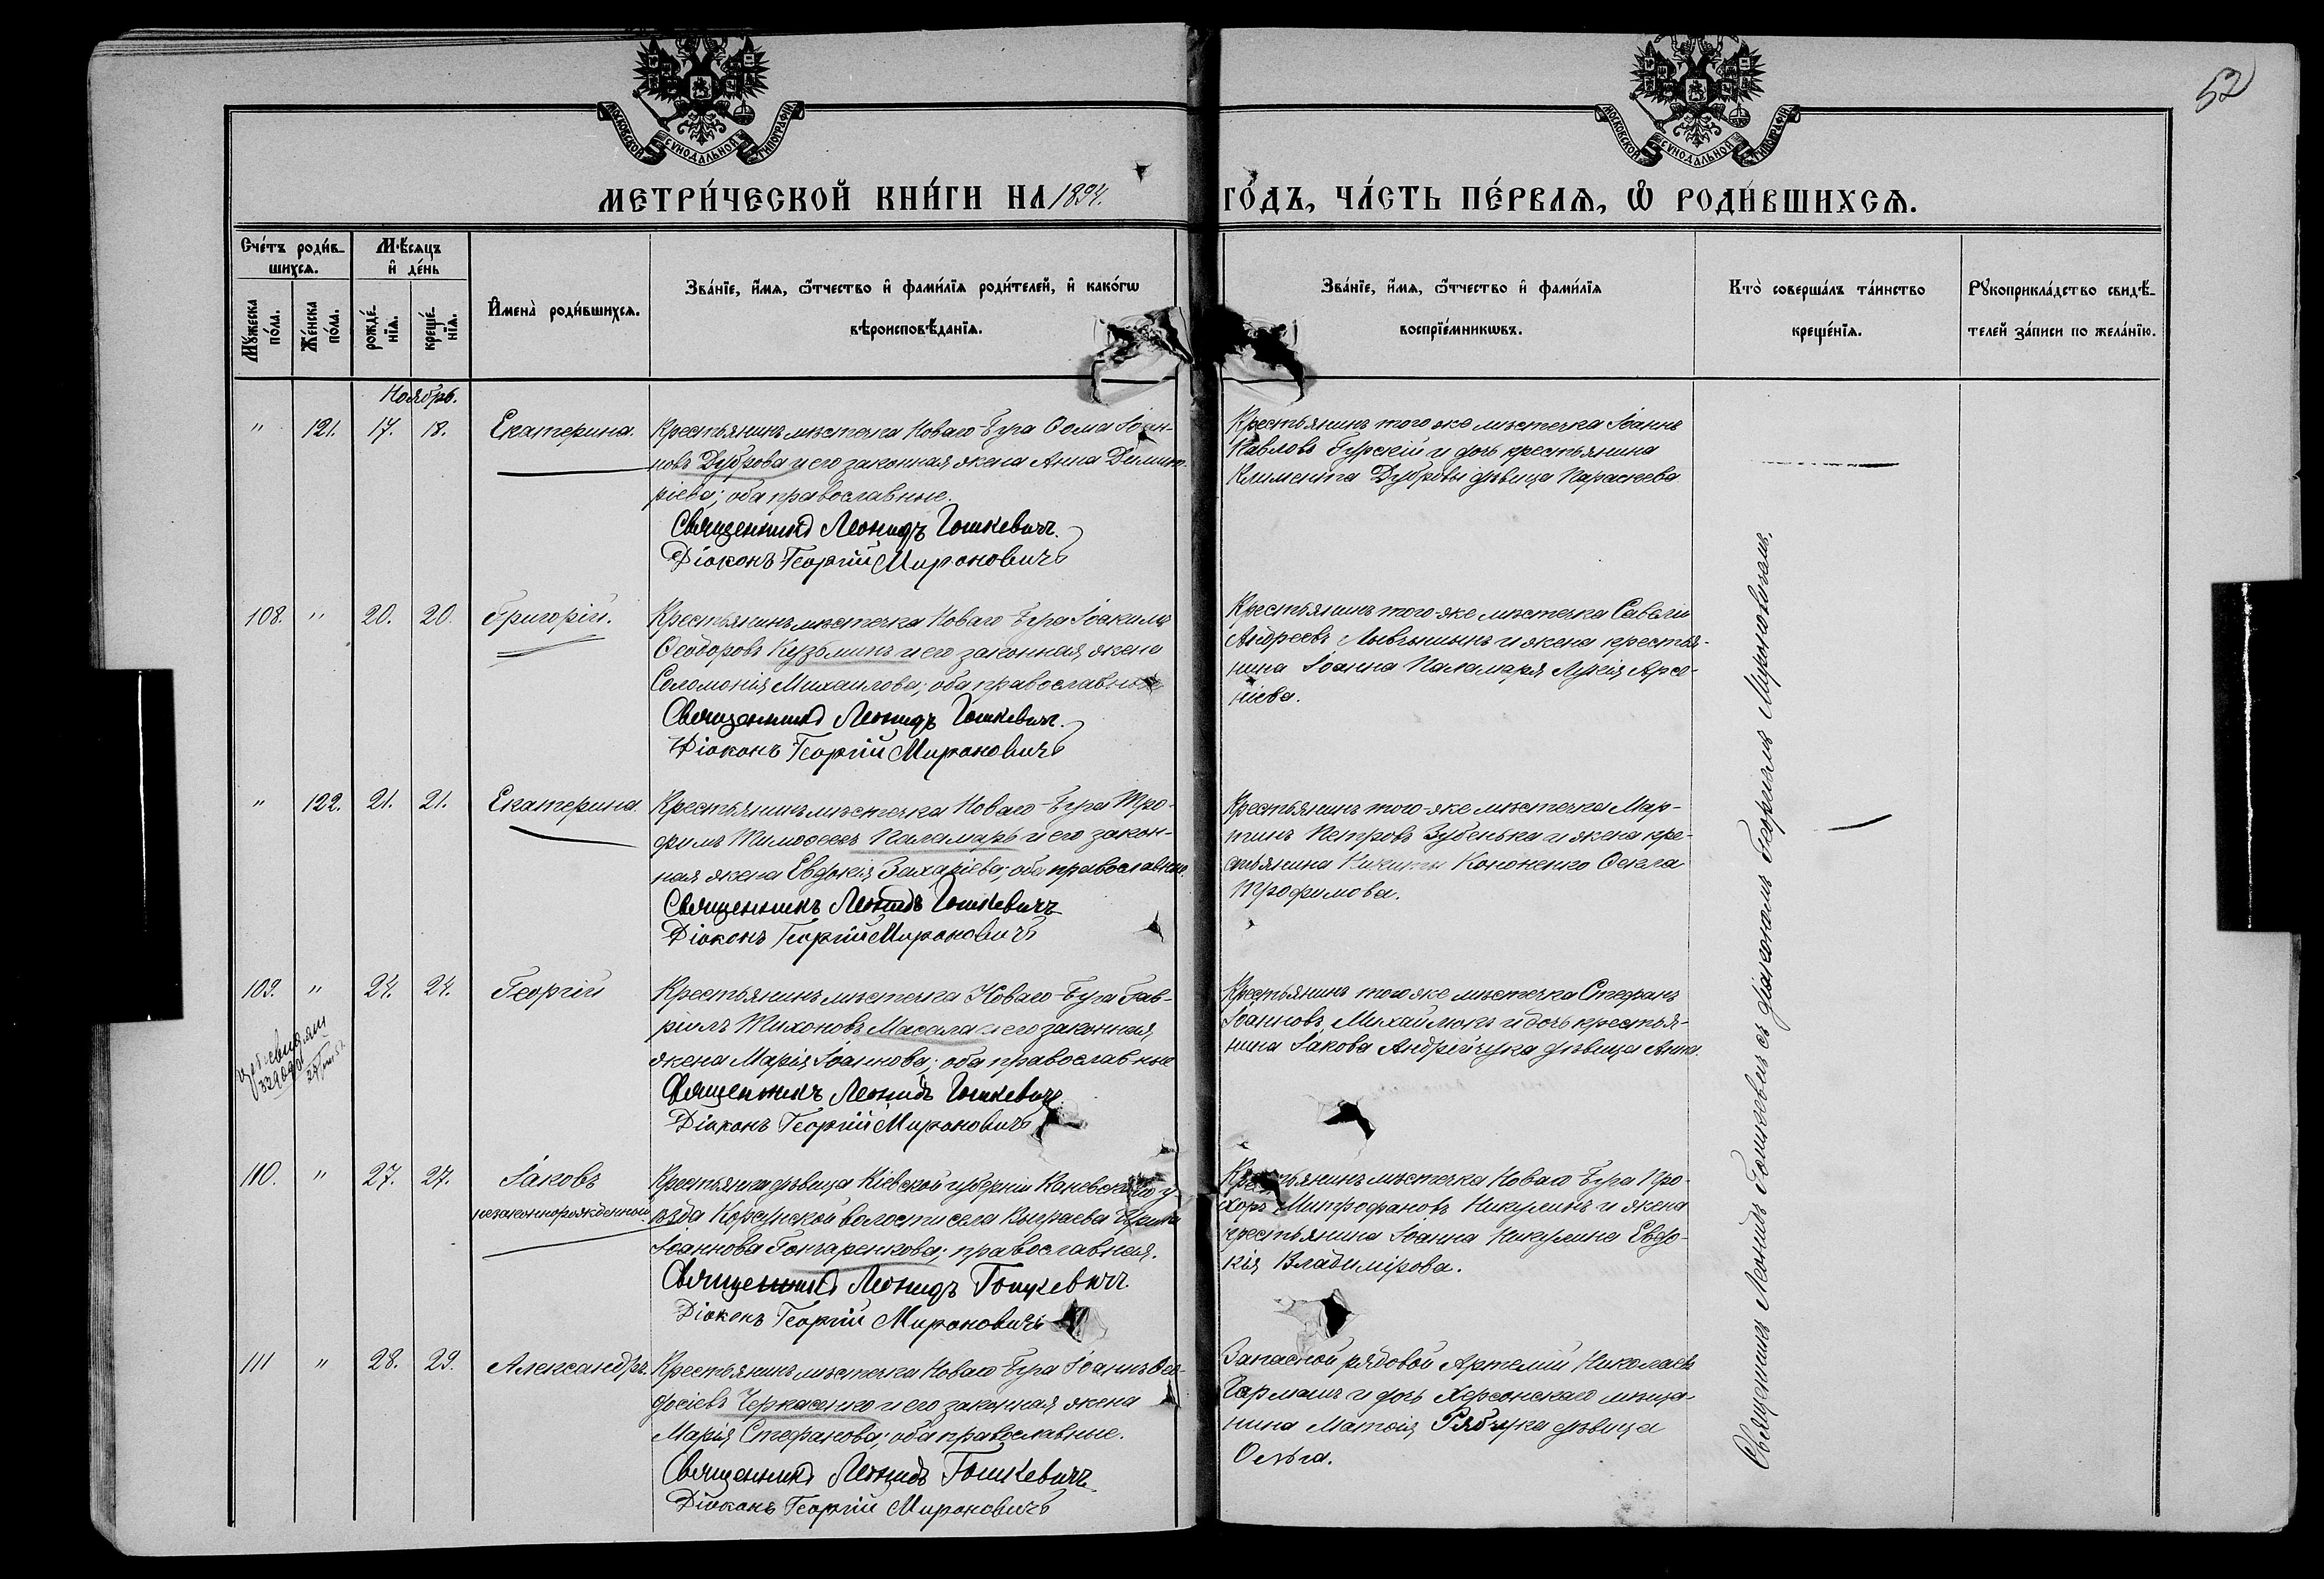 52
МОСКОВСКОЙ СѴНОДАЛЬНОЙ ТИПОГРАФІИ
МОСКОВСКОЙ СѴНОДАЛЬНОЙ ТИПОГРАФІИ
МЕТРИ́ЧЕСКОЙ КНИ́ГИ НА 1894. ГО́ДЪ, ЧА́СТЬ ПЕ́РВАѦ, Ѽ РОДИ́ВШИХСѦ.
Сче́тъ роди́в-
шихсѧ.
Мꙋ́жеска по́ла.
Же́нска по́ла.
Мѣ́сѧцъ и҆ де́нь
рожде́нїѧ.
креще́нїѧ.
И҆мена̀ роди́вшихсѧ.
Зва́нїе, и҆́мѧ, ѻ҆́тчество и҆ фами́лїѧ роди́телей, и҆ како́гѡ
вѣроисповѣ́данїѧ.
Зва́нїе, и҆́мѧ, ѻ҆́тчество и҆ фами́лїѧ
воспрїе́мникѡвъ.
Кто̀ соверша́лъ та́инство
креще́нїѧ.
Рꙋкоприкла́дство свидѣ́-
телей за́писи по жела́нїю.
Ноябрь.
" 121. 17. 18. Екатерина.
Крестьянинъ мѣстечка Новаго Буга Ѳома Іоан-
новъ Дуброва и его законная жена Анна Димит-
ріева; оба православные.
Священникъ Леонидъ Гошкевичъ.
Діаконъ Георгій Мироновичъ
Крестьянинъ того же мѣстечка Іоаннъ
Павловъ Гурскій и дочь крестьянина
Климента Дубровы дѣвица Параскева
108. " 20. 20. Григорій.
Крестьянинъ мѣстечка Новаго Буга Іоакимъ
Ѳеодоровъ Кузьминъ и его законная жена
Соломонія Михаилова; оба православные
Священникъ Леонидъ Гошкевичъ.
Діаконъ Георгій Мироновичъ
Крестьянинъ того-же мѣстечка Савелій
Андреевъ и жена крестья-
нина Іоанна Паламаря Лукія Арсе-
ніева.
" 122. 21. 21. Екатерина.
Крестьянинъ мѣстечка Новаго-Буга Тро-
фимъ Тимоѳеевъ Паламарь и его закон-
ная жена Евдокія Захаріева; оба православные.
Священникъ Леонидъ Гошкевичъ
Діаконъ Георгій Мироновичъ
Крестьянинъ того-же мѣстечка Мар-
тинъ Петровъ Зубенька и жена кре-
стьянина Никиты Кононенко Ѳекла
Трофимова.
109. " 24. 24. Георгій
Крестьянинъ мѣстечка Новаго-Буга Гав-
ріилъ Тихоновъ Масала и его законная
жена Марія Іоаннова; оба православные
Священникъ Леонидъ Гошкевичъ
Діаконъ Георгій Мироновичъ
Крестьянинъ того же мѣстечка Стефанъ
Іоанновъ Михайлюкъ и дочь крестья-
нина Іакова Андрійчука дѣвица Анна.
110. " 27. 27. Іаковъ
незаконнорожденный
Крестьянка дѣвица Кіевской губерніи Каневскаго у-
ѣзда Корсунской волости села Выграева Ирина
Іоаннова Гончаренкова; православная.
Священникъ Леонидъ Гошкевичъ.
Діаконъ Георгій Мироновичъ
Крестьянинъ мѣстечка Новаго Буга Про-
хоръ Митрофановъ Никулинъ и жена
крестьянина Іоанна Никулина Евдо-
кія Владимірова.
111 " 28. 29. Александръ.
Крестьянинъ мѣстечка Новаго Буга Іоаннъ Ѳео-
досіевъ Черкасенко и его законная жена
Марія Стефанова; оба православные.
Священникъ Леонидъ Гошкевичъ
Діаконъ Георгій Мироновичъ
Запасной рядовой Артемій Николаевъ
Гармашъ и дочь Херсонскаго мѣща-
нина Матѳія Рябчука дѣвица
Ольга.
Священникъ Леонидъ Гошкевичъ съ діакономъ Георгіемъ Мироновичемъ.